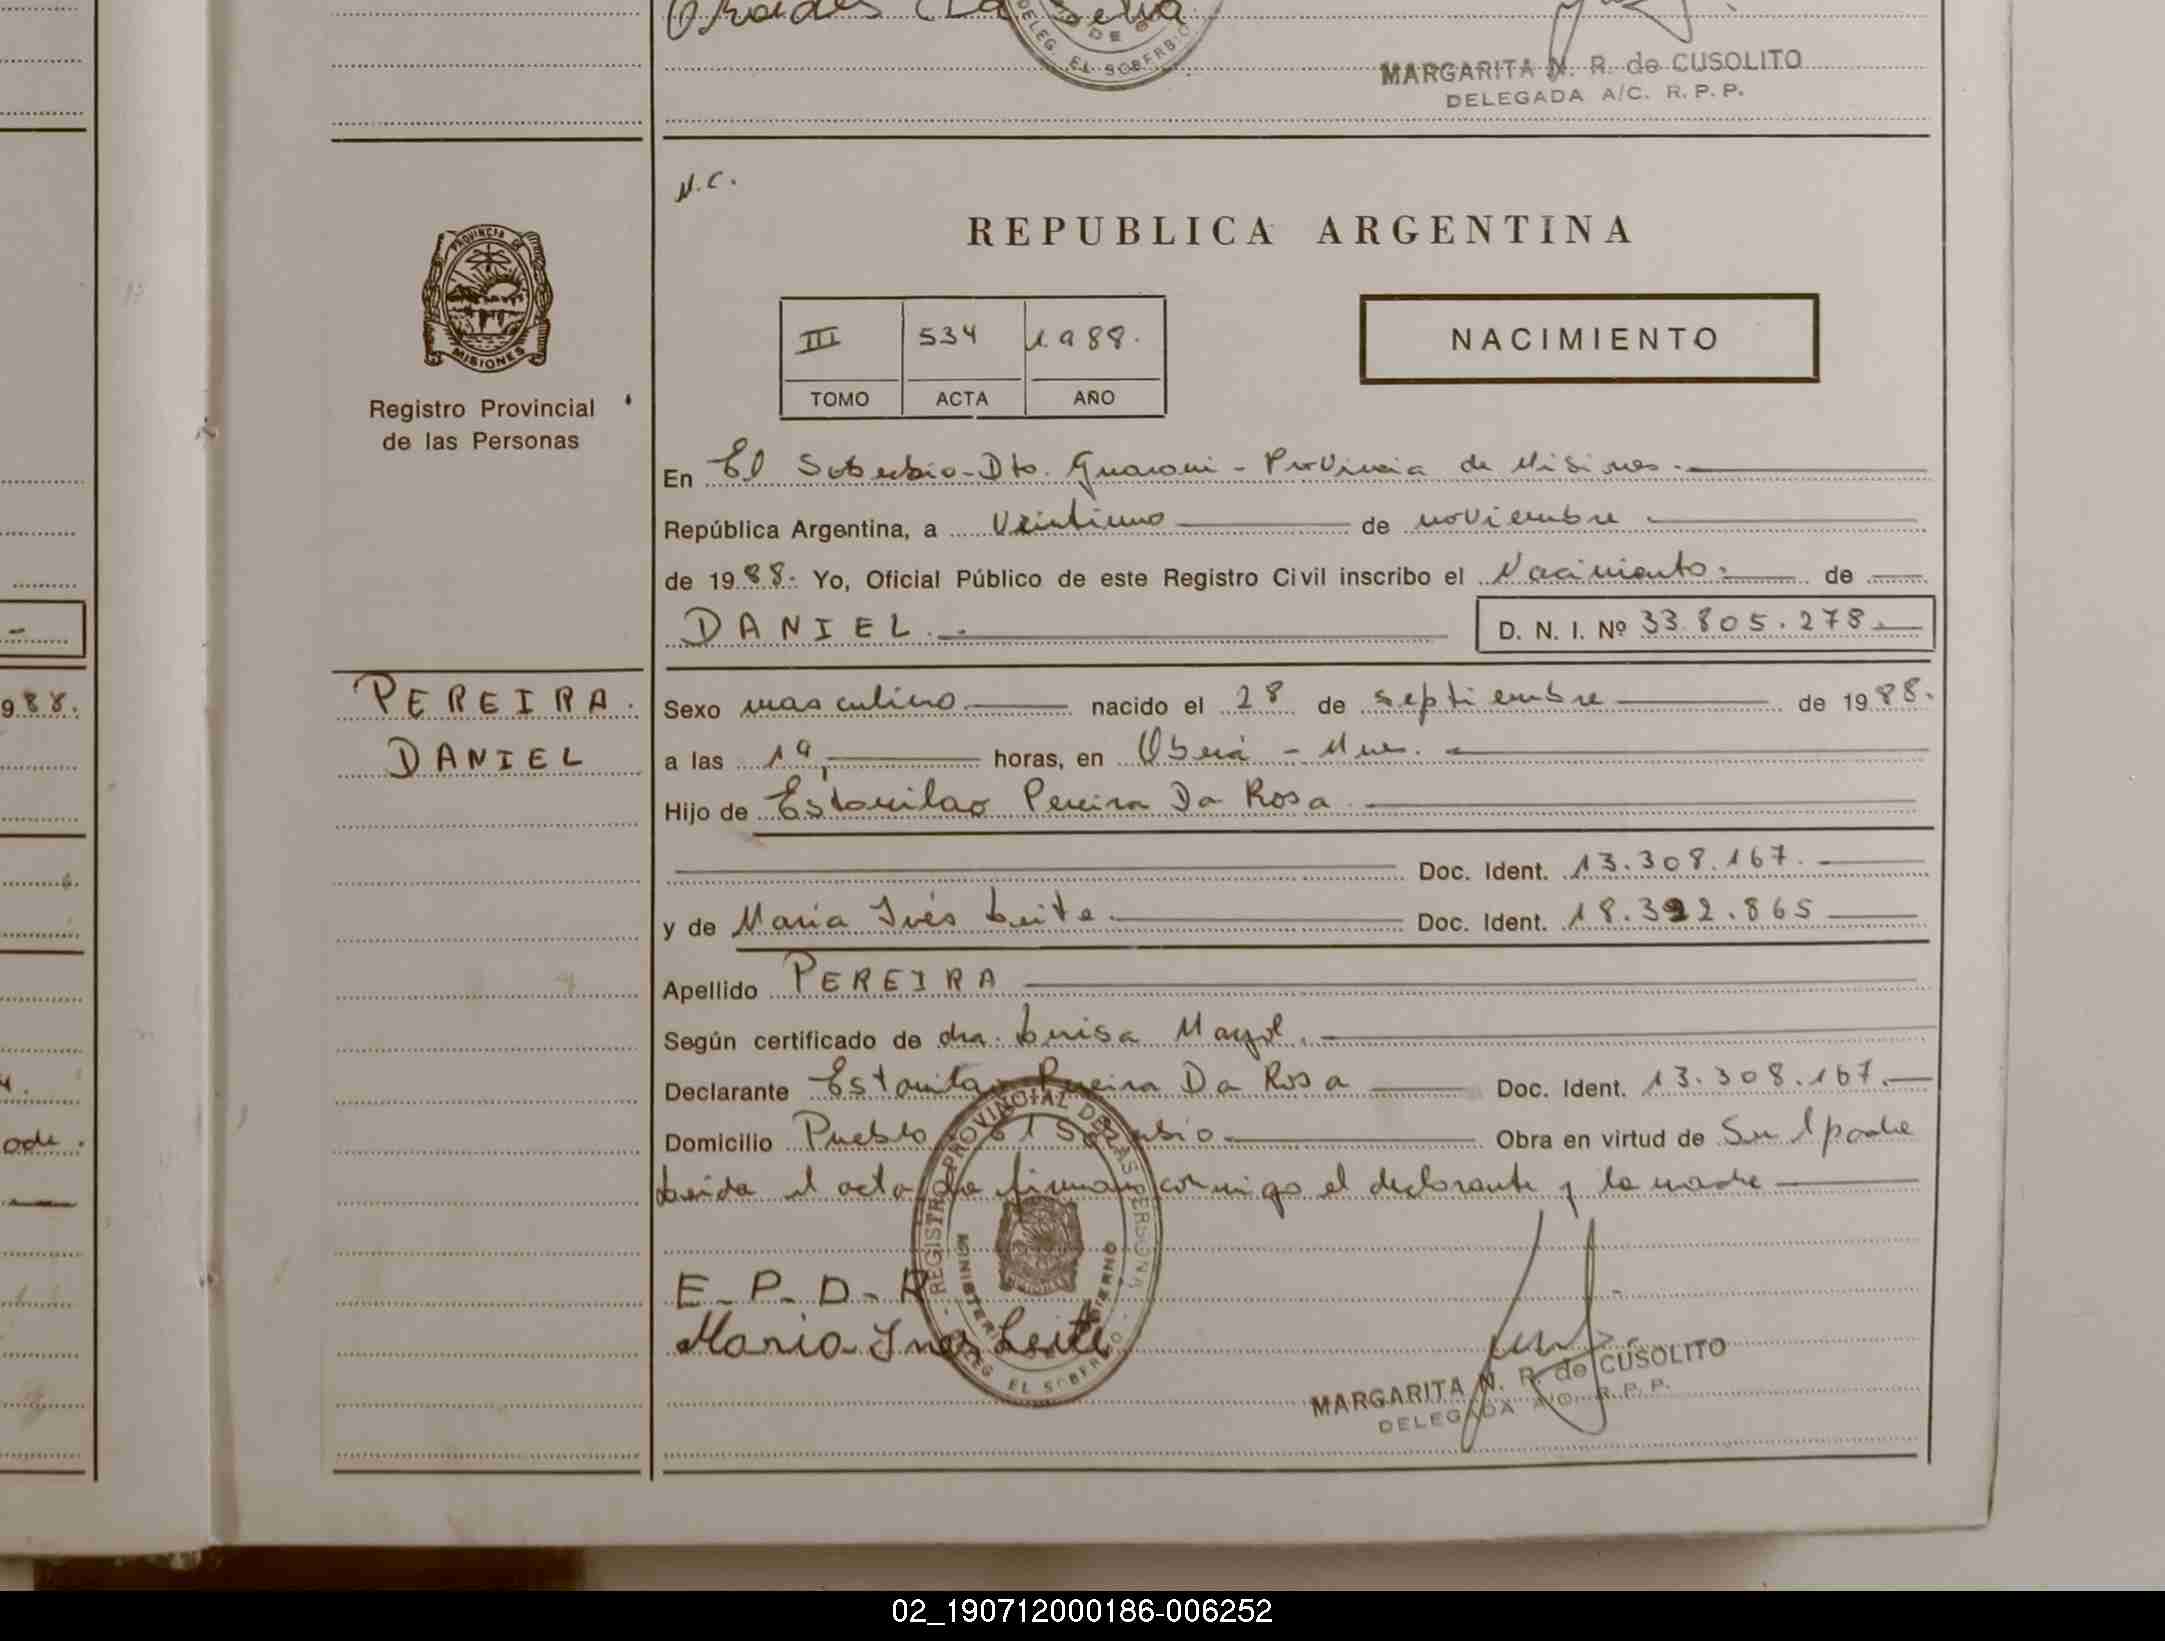 MARGARITA N. R. de CUSOLITO
DELEGADA A/C. R. P. P.
DELEG. EL SOBERBIO
N.C.
REPUBLICA ARGENTINA
PROVINCIA DE
MISIONES
Registro Provincial
de las Personas
III 534 1988.
TOMO ACTA AÑO
NACIMIENTO
En El Soberbio - Dto. Guarani - Provincia de Misiones.
República Argentina, a Veintiuno de noviembre
de 1988. Yo, Oficial Público de este Registro Civil inscribo el Nacimiento. de
DANIEL. D. N. I. Nº 33.805.278.
PEREIRA.
DANIEL
Sexo masculino nacido el 28 de septiembre de 1988.
a las 19, horas, en Oberá - Mnes.
Hijo de Estanilao Pereira Da Rosa
Doc. Ident. 13.308.167.
y de Maria Inés Leite. Doc. Ident. 18.322.865
Apellido PEREIRA
Según certificado de dra. Luisa Mayol.
Declarante Estanilao Pereira Da Rosa Doc. Ident. 13.308.167.
Domicilio Pueblo El Soberbio Obra en virtud de Ser el padre
Leida el acta la firman conmigo el declarante y la madre
E - P - D - R
Maria Ines Leite
REGISTRO PROVINCIAL DE LAS PERSONAS
MINISTERIO GOBIERNO
DELEG EL SOBERBIO
MARGARITA N. R. de CUSOLITO
DELEGADA A/C. R. P. P.
988.
02_190712000186-006252